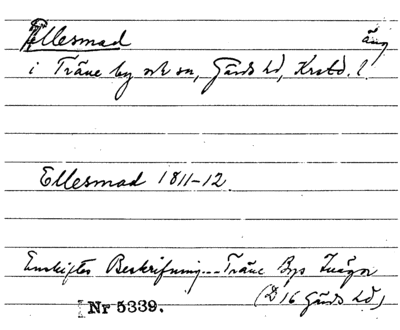 Ellesmad äng
i Träne by och sn, Gärds hd, Krstd. l.
Ellesmad 1811-12
Enskiftes Beskrifning... Träne Bys Inägor
(D 16 Gärds hd)
Nr 5339.